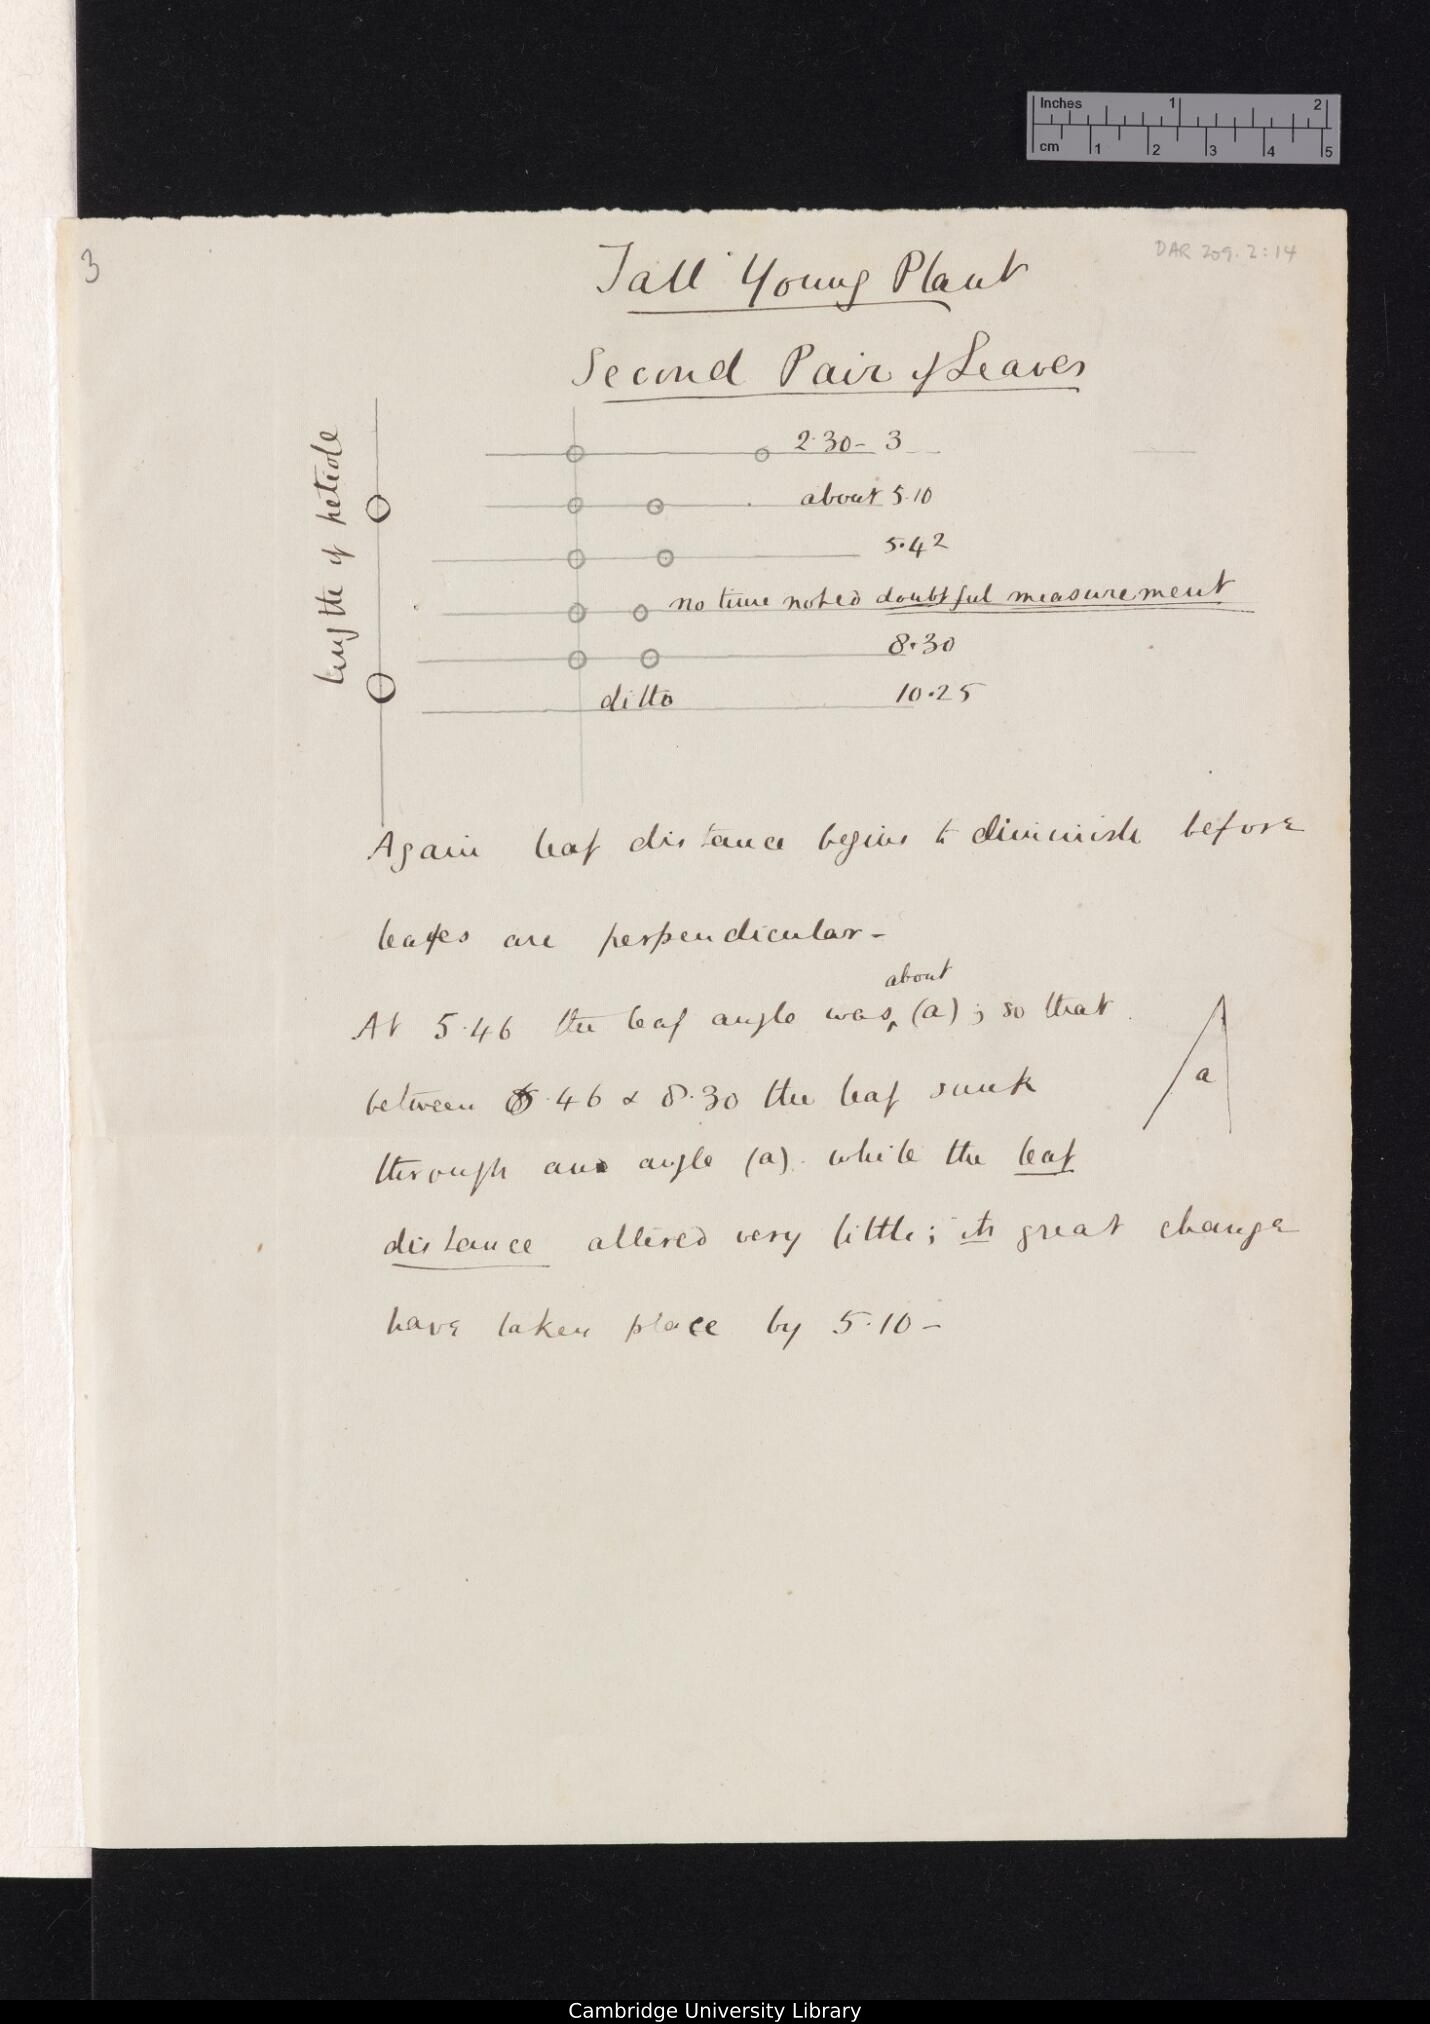 Inches 1 2
cm 1 2 3 4 5
3
DAR 209.2:14
Tall Young Plant
Second Pair of Leaves
length of petiole
2.30 - 3
about 5.10
5.42
no time noted doubtful measurement
8.30
ditto 10.25
Again leaf distance begins to diminish before
leaves are perpendicular -
about
At 5.46 the leaf angle was (a) ; so that
a
between 5.46 & 8.30 the leaf sunk
through an angle (a). while the leaf
distance altered very little; its great change
have taken place by 5.10 -
Cambridge University Library